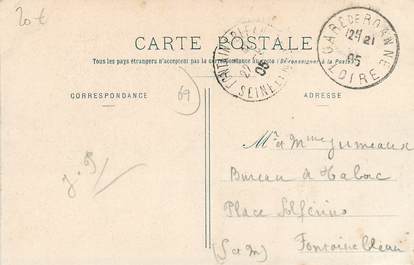 20 €
CARTE POSTALE
Tous les pays étrangers n'acceptent pas la correspondance au recto (Se renseigner à la Poste)
CORRESPONDANCE
ADRESSE
GARE DE ROANNE
21
05
LOIRE
FONTAINEBLEAU
22
05
SEINE ET M
69
J. P
Mr et Mme Jumeaux
Bureau de Tabac
Place Solférino
(S et M) Fontainebleau